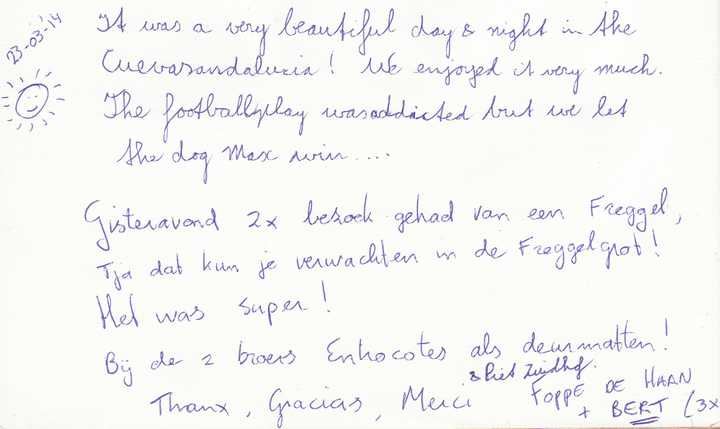 23-03-14
It was a very beautiful day & night in the
Cuevasandalucia! We enjoyed it very much.
The footballplay was addicted but we let
the dog Max win....
Gisteravond 2x bezoek gehad van een Freggel,
Tja dat kun je verwachten in de Freggelgrot!
Het was super!
Bij de 2 broers Enkocotes als deurmatten!
& Piet Zuidhof.
Thanx, Gracias, Merci Foppe DE HAAN
+ BERT (3x